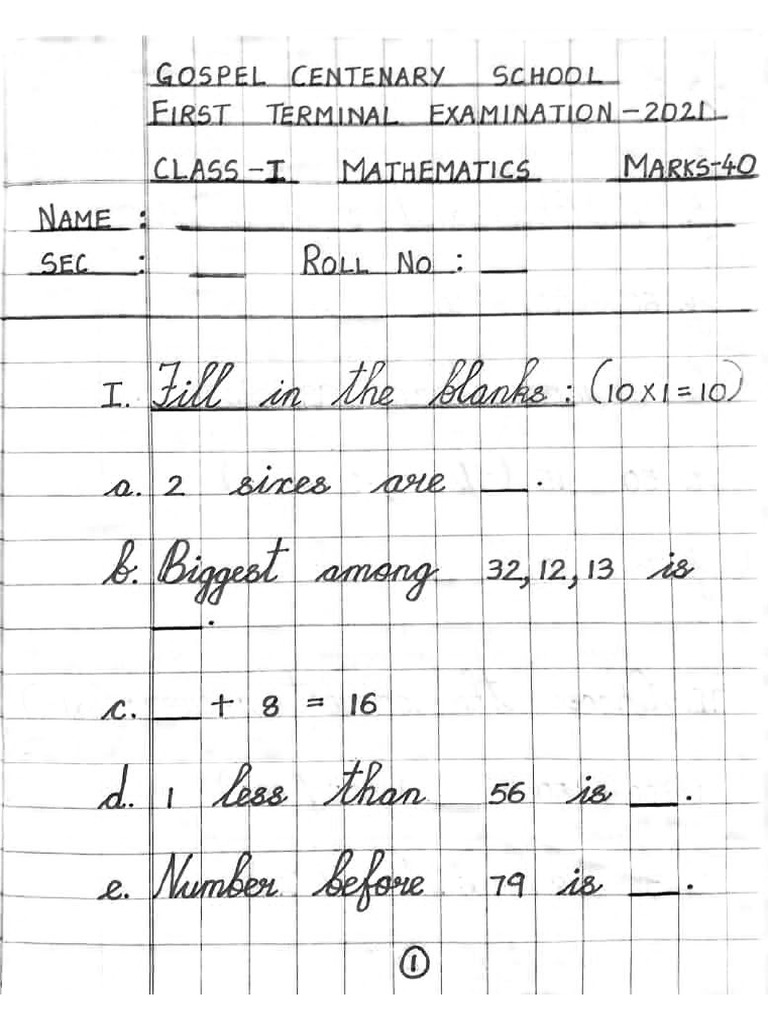 GOSPEL CENTENARY SCHOOL
FIRST TERMINAL EXAMINATION-2021
CLASS-I MATHEMATICS MARKS-40
NAME : ___
SEC : ___ ROLL NO : ___
I. Fill in the blanks: (10x1=10)
a. 2 sixes are ___.
b. Biggest among 32, 12, 13 is
___.
c. ___ + 8 = 16
d. 1 less than 56 is ___.
e. Number before 79 is ___.
1